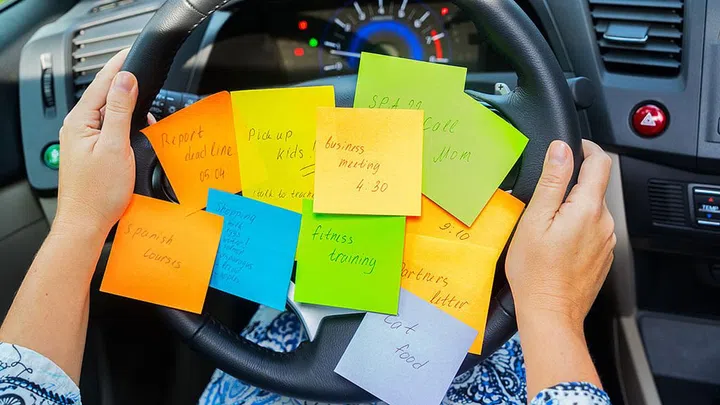 Report
deadline
05.04
Pick up
kids!
talk to teacher
business
meeting
4.30
SPA
Call
Mom
Spanish
courses
Shopping
fitness
training
9:10
Partners
letter
Cat
food
TEMP